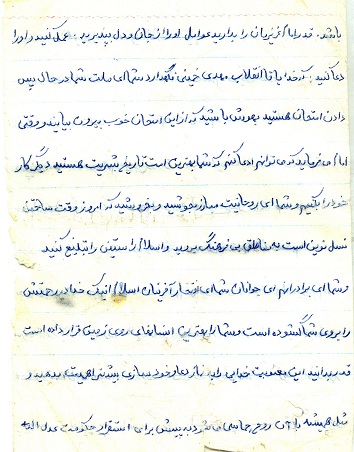 باشد. قدر امام عزیزمان را بدارید عوامل او را از جان و دل بپذیرید. عمل کنید و او را
دعا کنید: که خدایا تا انقلاب مهدی خمینی نگهدار و شما ای ملت شما در حال پس
دادن امتحان هستید بهوش باشید که از این امتحان خوب بیرون بیائید وقتی
امام میفرماید که میتوانم ادعا کنم که شما بهترین امت تاریخ بشریت هستید دیگر کار
خود را بکنیم و شما ای روحانیت مبارز بجوشید و بخروشید که امروز وقت ساختن
نسل نوین است به مناطق بی فرهنگ بروید و اسلام راستین را تبلیغ کنید
و شما ای برادرانم ای جوانان شما ای افتخار آفرینان اسلام اینک خدا در رحمتش
را بروی شما گشوده است و شما را بهترین انسانهای روی زمین قرار داده است
قدر بدانید این معنویت خدایی را به نماز دعا و خودسازی بیشتر اهمیت بدهید و
مثل همیشه با آن روح حماسی به پیش برای استقرار حکومت عدل الله